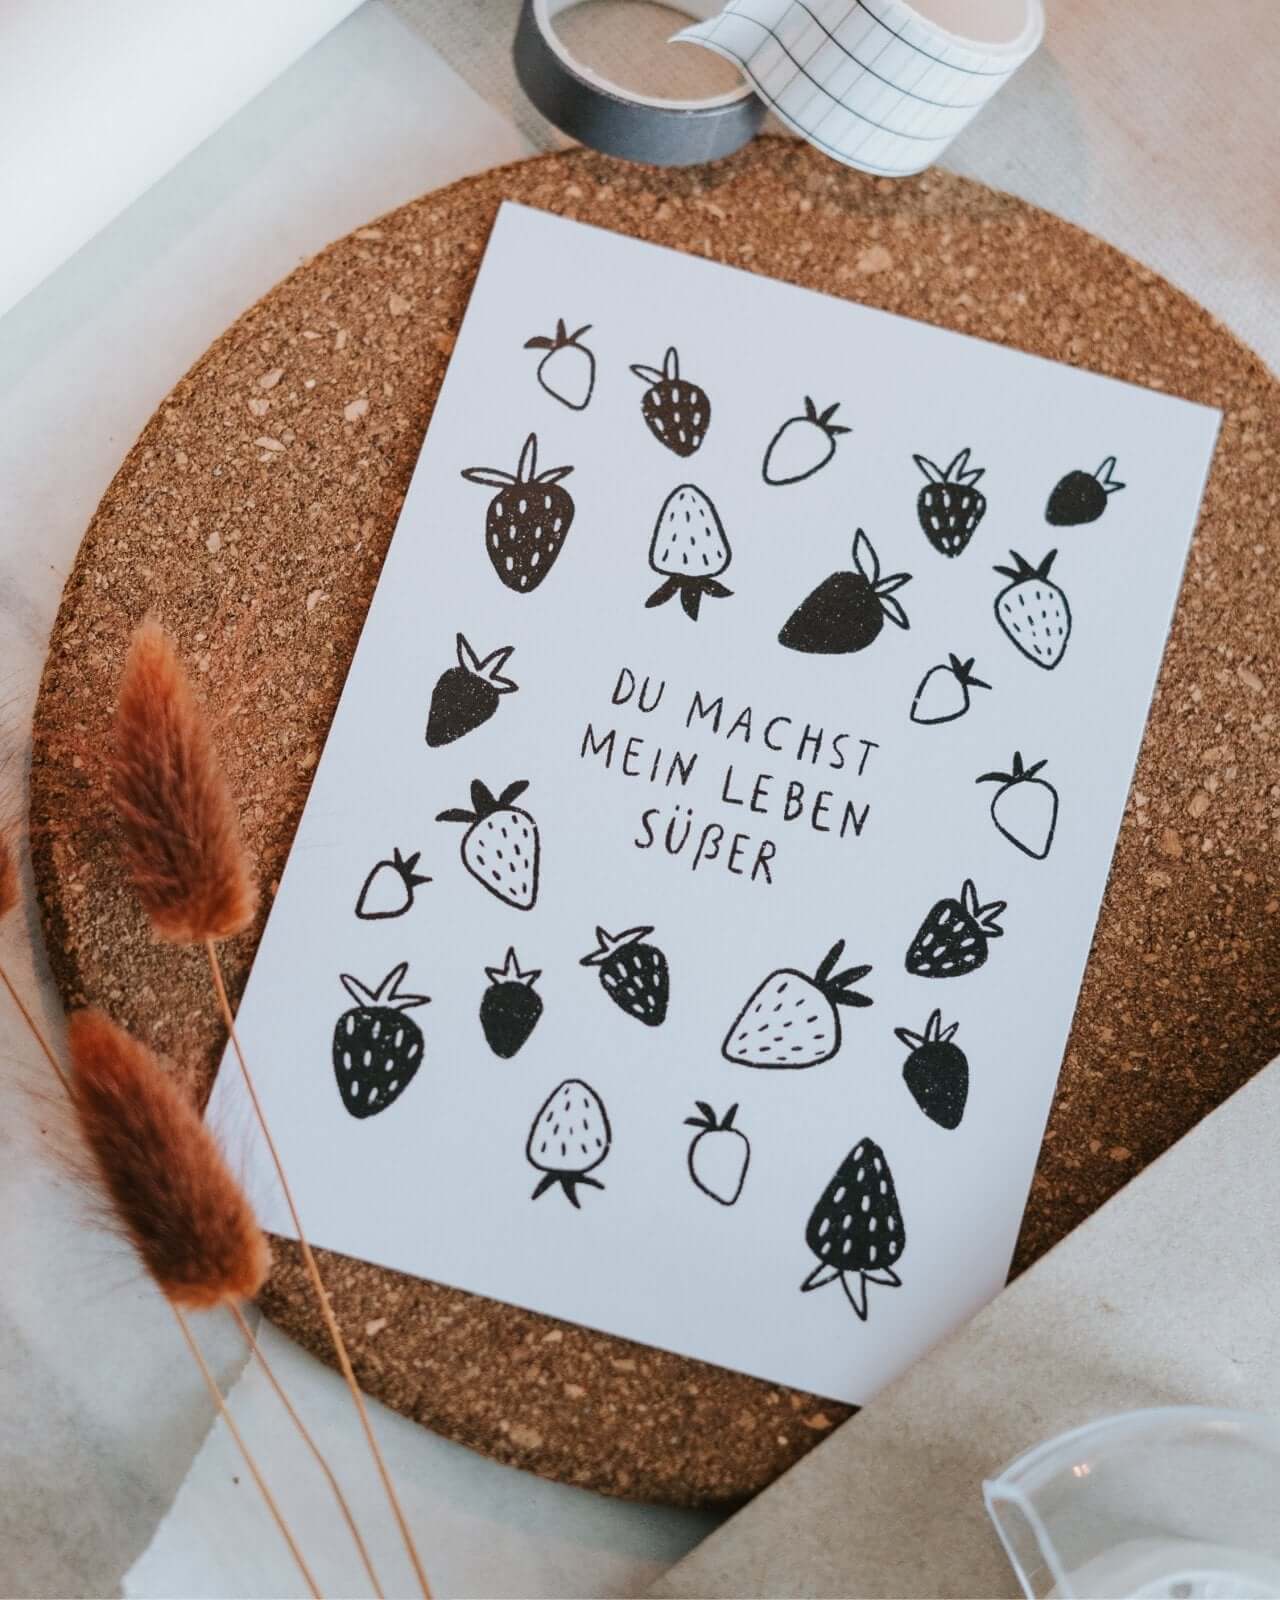 DU MACHST
MEIN LEBEN
SÜßER